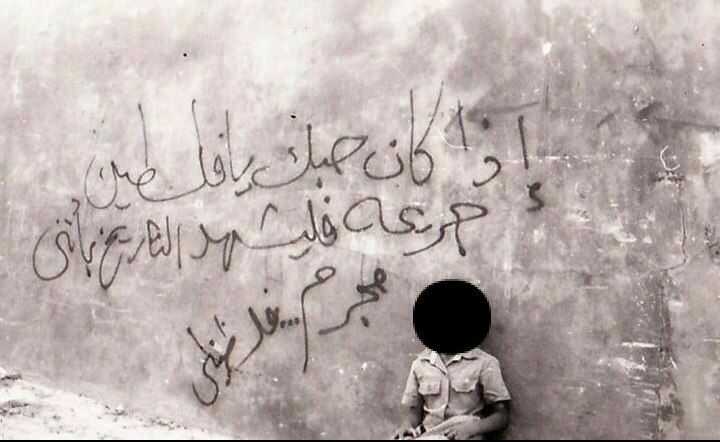 إذا كان حبك يا فلسطين
جريمة فليشهد التاريخ بأنني
مجرم...